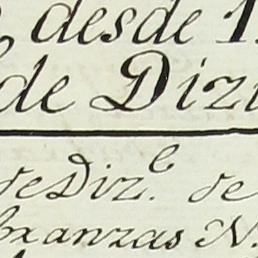 desde 1
de Dizi
de Diz.e de
branzas N.